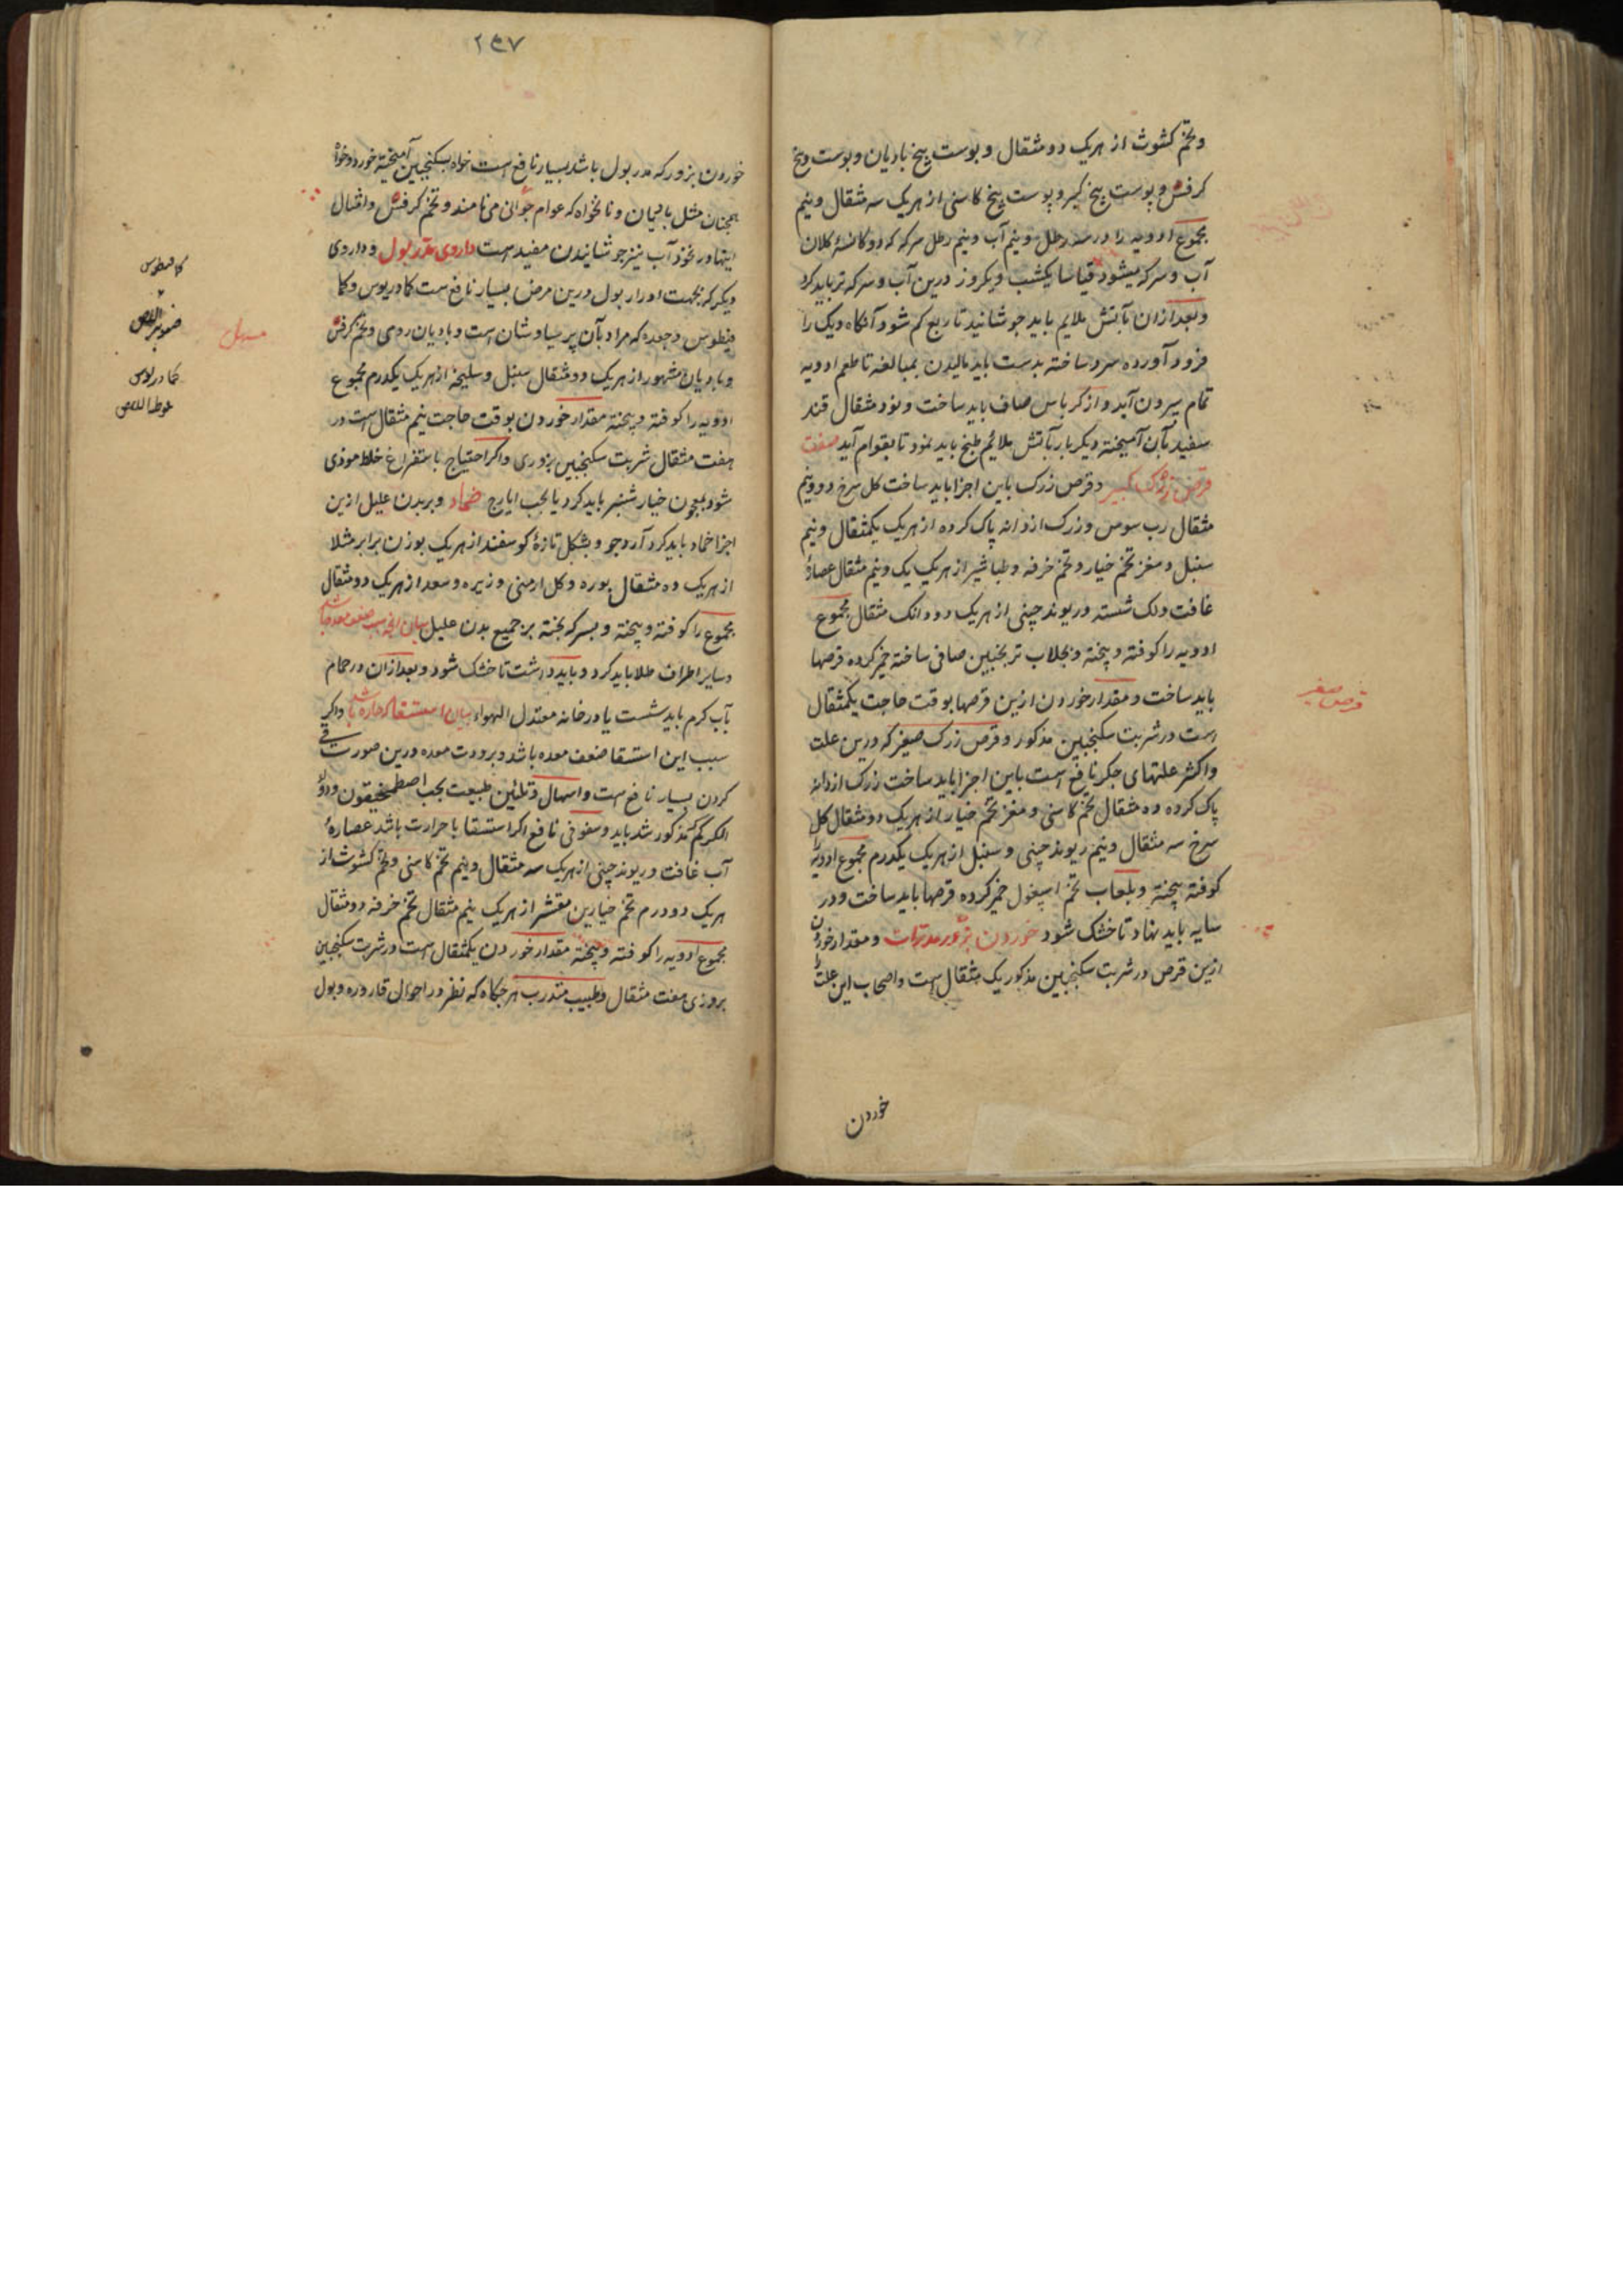 وتخم کشوث از هریک دو مثقال و پوست بیخ بادیان و پوست بیخ
کرفس و پوست بیخ کبر و پوست بیخ کاسنی از هریک سه مثقال و نیم
مجموع ادویه را در سه رطل و نیم آب و نیم رطل سرکه که دو کاسهٔ کلان
آب و سرکه میشود قیاسا یکشب و یکروز درین آب و سرکه تر باید کرد
و بعد ازان بآتش ملایم باید جوشانید تا ربع کم شود آنکاه دیک را
فرود آورده سرد ساخته بدست باید مالیدن بمبالغه تا طعم ادویه
تمام بیرون آید و از کرباس صاف باید ساخت و نود مثقال قند
سفید بآن آمیخته دیکر بار بآتش ملائم طبخ باید نمود تا بقوام آید صفت
قرص زرک کبیر و قرص زرک باین اجزا باید ساخت کل سرخ دو و نیم
مثقال رب سوس و زرک از دانه پاک کرده از هریک یکمثقال و نیم
سنبل و مغز تخم خیار و تخم خرفه و طباشیر از هریک یک و نیم مثقال عصارهٔ
غافت و لک شسته و ریوند چینی از هریک دو دانک مثقال مجموع
ادویه را کوفته و بیخته و بجلاب ترنجبین صافی ساخته خمیر کرده قرصها
باید ساخت و مقدار خوردن ازین قرصها بوقت حاجت یکمثقال
است در شربت سکنجبین مذکور و قرص زرک صغیر که درین علت
و اکثر علتهای جکر نافع است باین اجزا باید ساخت زرک از دانه
پاک کرده ده مثقال تخم کاسنی و مغز تخم خیار از هریک دو مثقال کل
سرخ سه مثقال و نیم ریوند چینی و سنبل از هریک یکدرم مجموع ادویه را
کوفته بیخته و بلعاب تخم اسپغول خمیر کرده قرصها باید ساخت و در
سایه باید نهاد تا خشک شود خوردن بزور مدرات و مقدار خوردن
ازین قرص در شربت سکنجبین مذکور یک مثقال است و اصحاب این علت را
خوردن
قرص صغیر
۲۴۷
خوردن بزور که مدر بول باشد بسیار نافع است خواه بسکنجبین آمیخته خورد و خواه
همچنان مثل بادیان و نانخواه که عوام جوانی می نامند و تخم کرفس و امثال
اینها و در نخود آب نیز جوشانیدن مفید است داروی مدر بول و داروی
دیکر که بجهت ادرار بول درین مرض بسیار نافع ست کمادریوس و کما
فیطوس و جعده که مراد بآن پرسیاوشان است و بادیان رومی و تخم کرفس
و بادیان مشهور از هریک دو مثقال سنبل و سلیخه از هریک یکدرم مجموع
ادویه را کوفته و بیخته مقدار خوردن بوقت حاجت نیم مثقال است در
هفت مثقال شربت سکنجبین بزوری و اکر احتیاج باستفراغ خلط موذی
شود بمعجون خیار شنبر باید کرد یا بحب ایارج ضماد و بر بدن علیل ازین
اجزا ضماد باید کرد آرد جو و پشکل تازهٔ کوسفند از هریک بوزن برابر مثلا
از هریک ده مثقال بوره و کل ارمنی و زیره و سعد از هریک دو مثقال
مجموع را کوفته و بیخته و بسرکه پخته بر جمیع بدن علیل
و سایر اطراف طلا باید کرد و باید داشت تا خشک شود و بعد ازان در حمام
بآب کرم باید شست یا در خانه معتدل الهواء بیان استسقا که حاره باشد و اکر
سبب این استسقا ضعف معده باشد و برودت معده درین صورت قی
کردن بسیار نافع ست و اسهال و تلیین طبیعت بحب اصطمخیقون و دواء
الکرکم مذکور شد باید و سفوفی نافع اکر استسقا با حرارت باشد عصارهٔ
آب غافت و ریوند چینی از هریک سه مثقال و نیم تخم کاسنی و تخم کشوث از
هریک دو درم تخم خیارین مقشر از هریک نیم مثقال تخم خرفه دو مثقال
مجموع ادویه را کوفته و بیخته مقدار خوردن یکمثقال است در شربت سکنجبین
بزوری هفت مثقال و طبیب متدرب هرجکاه که نظر در احوال قاروره و بول
مسهل
کمافیطوس
صنوبر الارض
کمادریوس
بلوط الارض